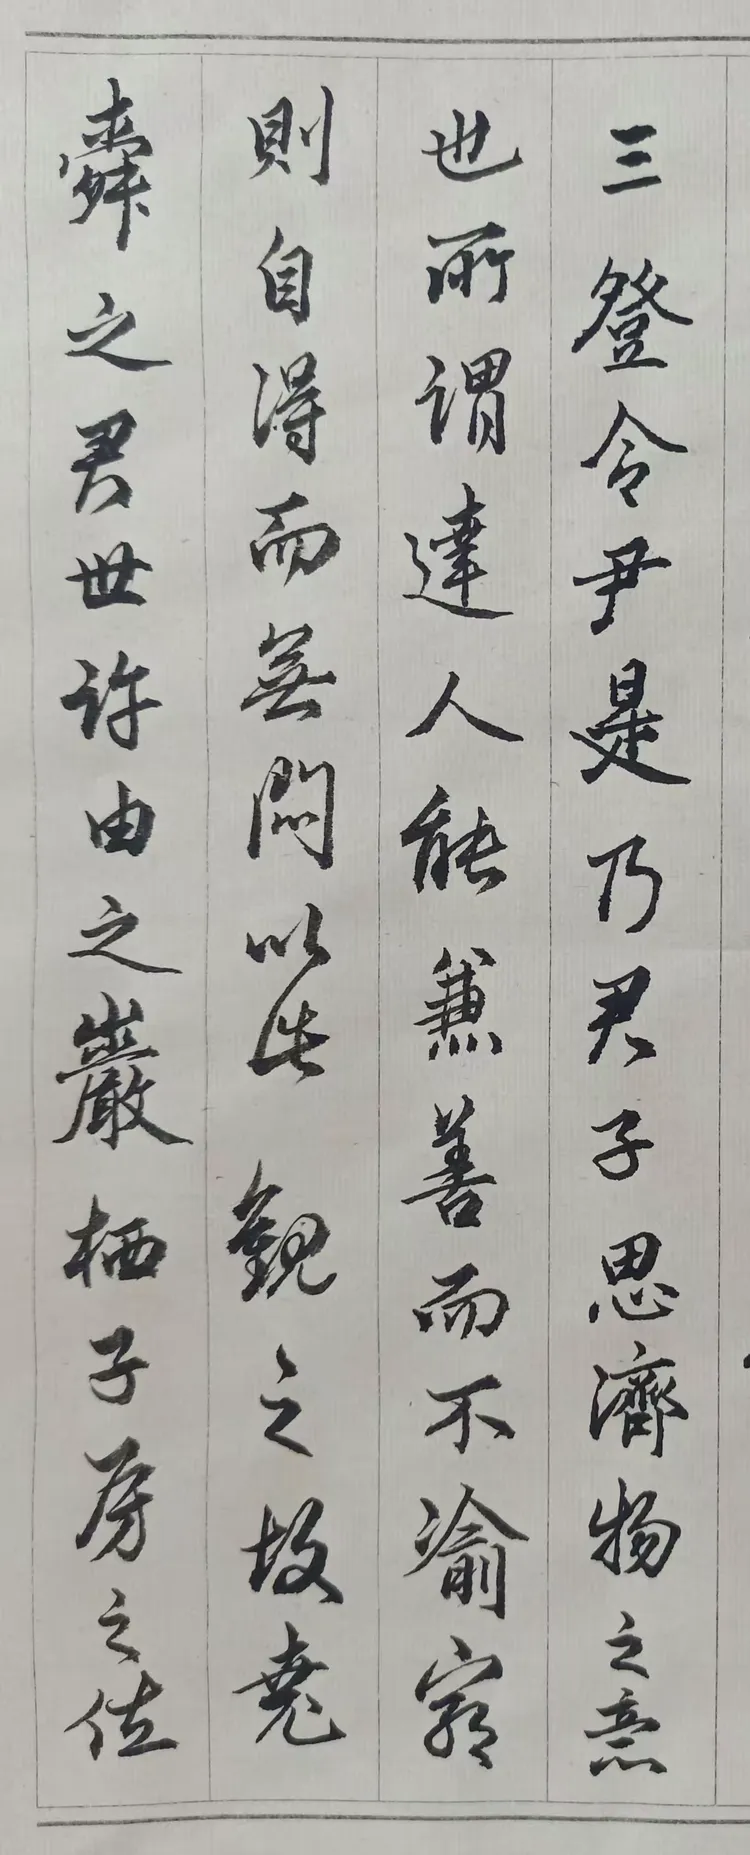 三登令尹是乃君子思濟物之意
也所謂達人能兼善而不渝窮
則自得而無悶以此觀之故堯
舜之君世許由之巖栖子房之佐